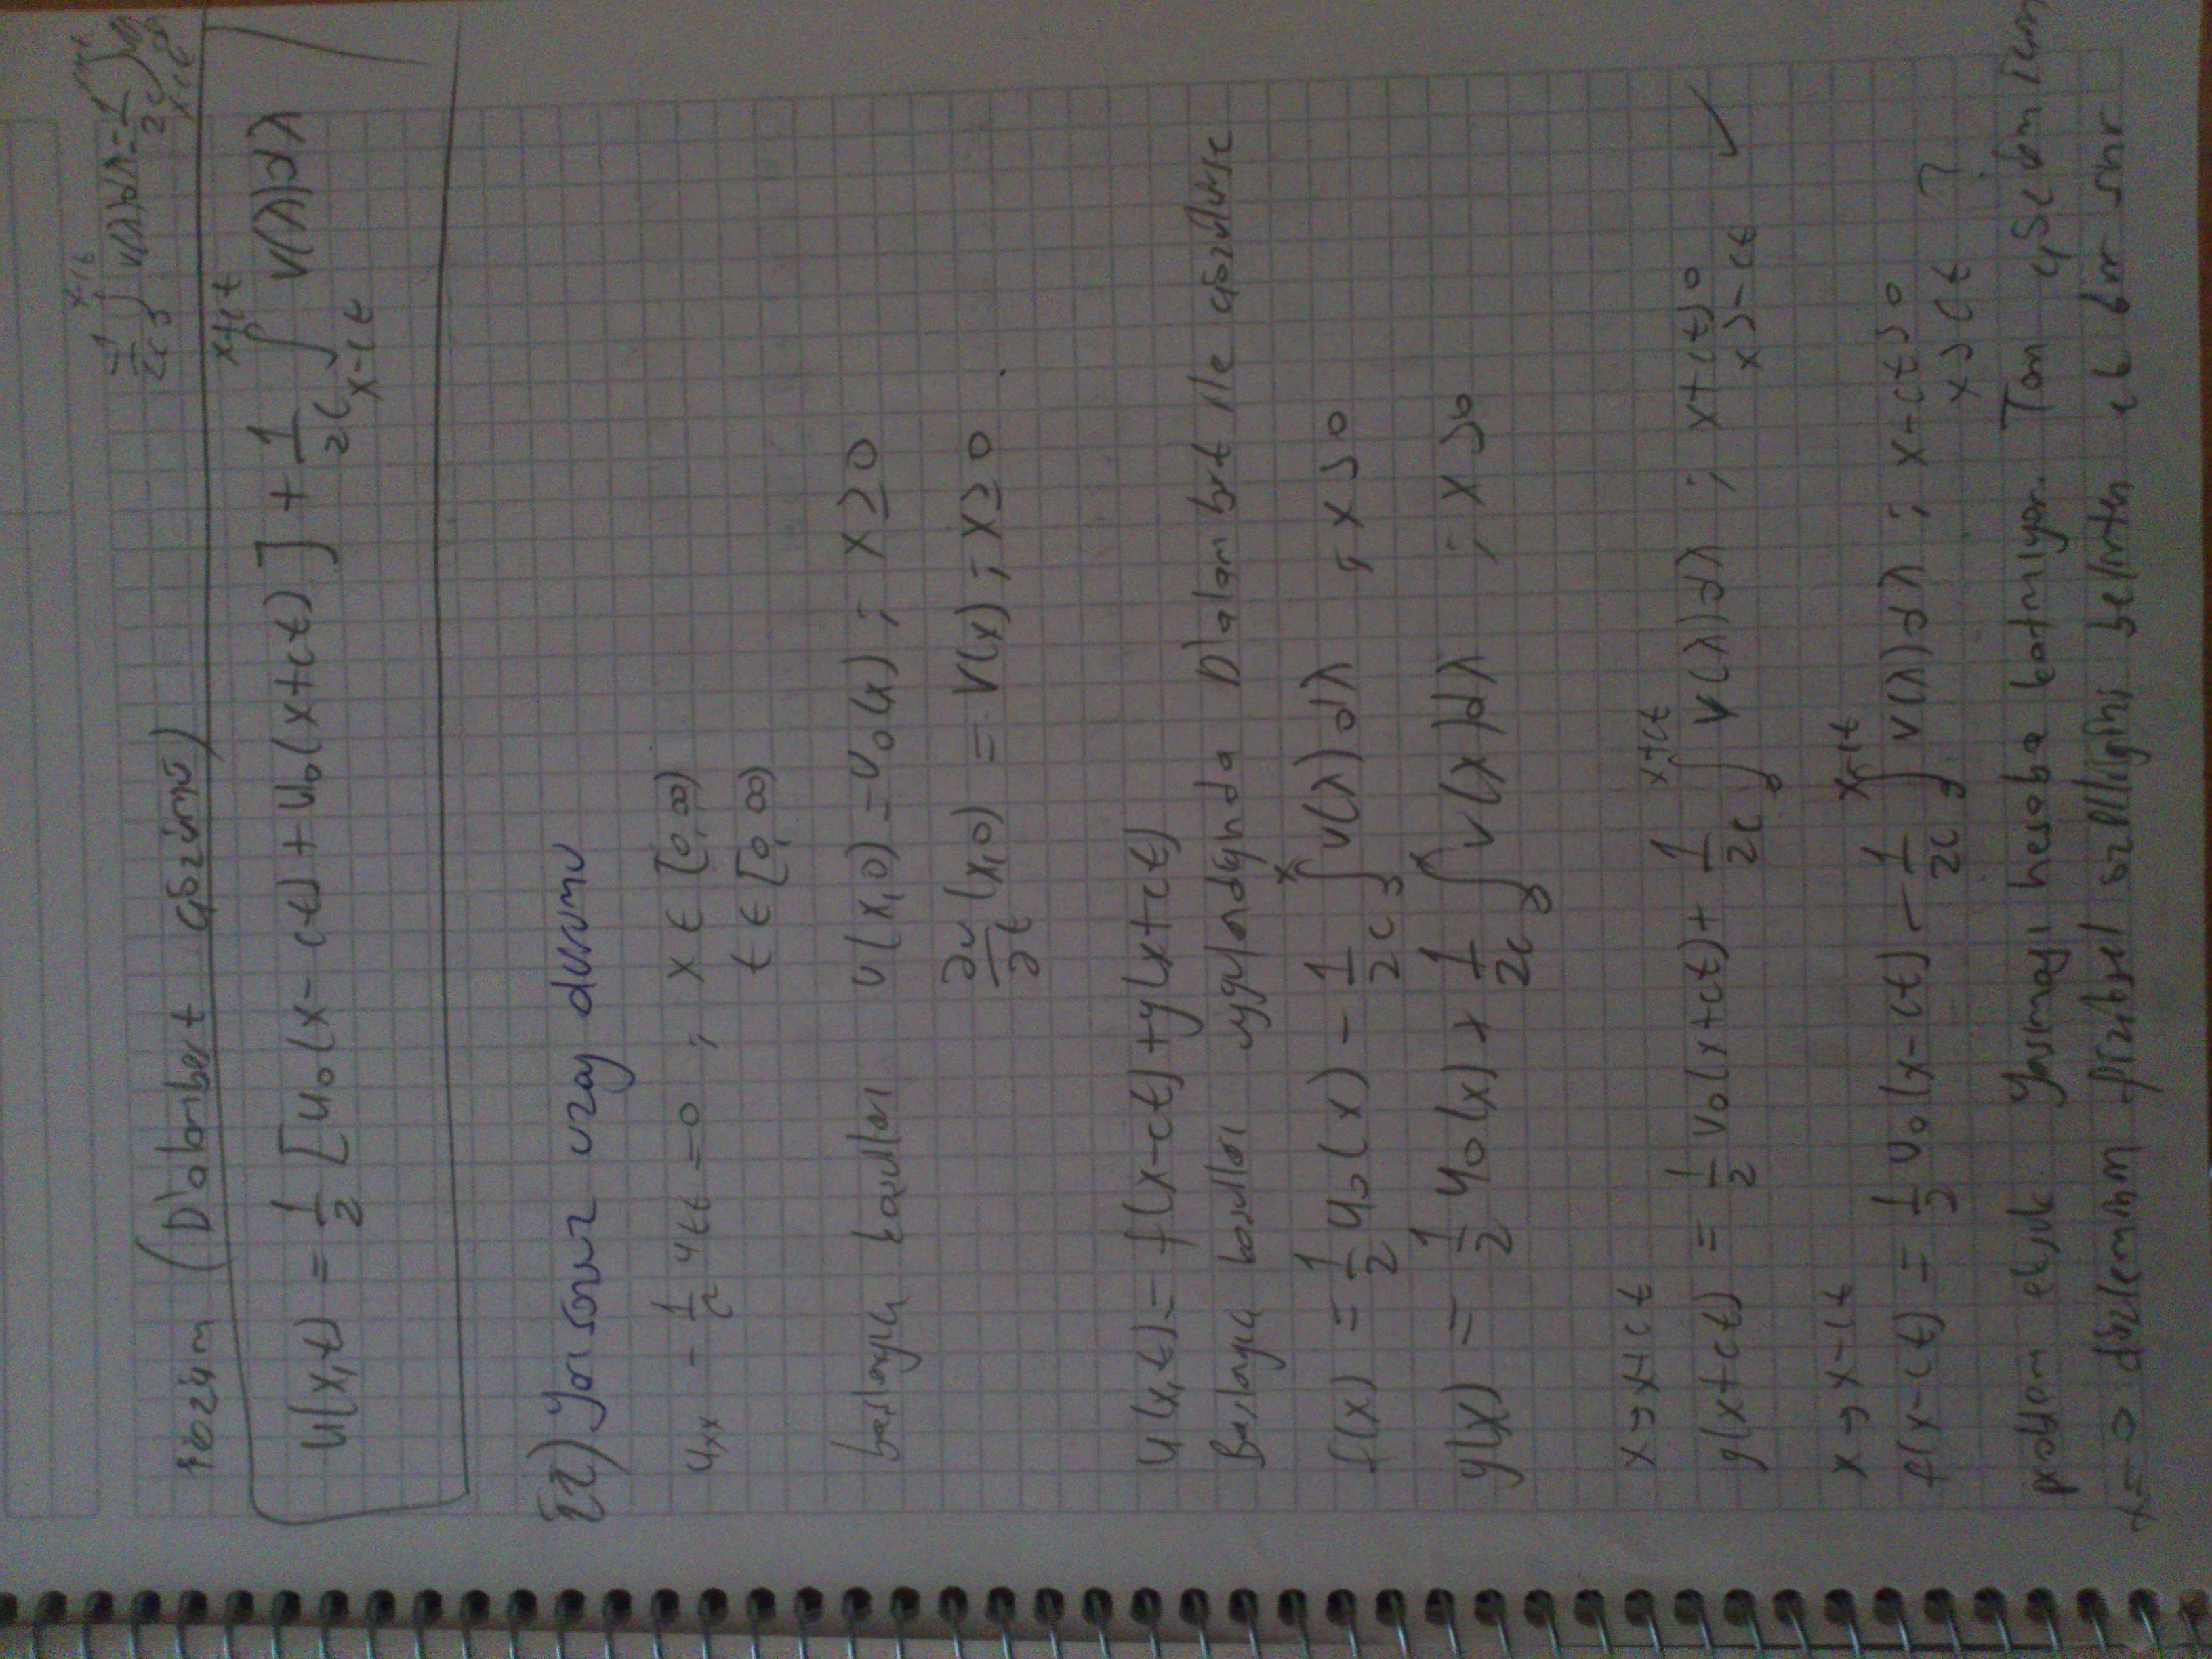 -1/2c ∫₀^(x-ct) v(λ)dλ = 1/2c ∫
(D'alambert çözümü)
u(x,t) = 1/2 [u₀(x-ct) + u₀(x+ct)] + 1/2c ∫_(x-ct)^(x+ct) v(λ)dλ
II) Yarı sonsuz uzay durumu
uxx - 1/c² utt = 0 ; x ∈ [0,∞)
t ∈ [0,∞)
başlangıç koşulları u(x,0) = u₀(x) ; x ≥ 0
∂u/∂t (x,0) = v(x) ; x ≥ 0
u(x,t) = f(x-ct) + g(x+ct)
Başlangıç koşulları uygulandığında D'alambert ile çözülürse
f(x) = 1/2 u₀(x) - 1/2c ∫₀^x v(λ)dλ ; x > 0
g(x) = 1/2 u₀(x) + 1/2c ∫₀^x v(x)dλ ; x > 0
x → x+ct
g(x+ct) = 1/2 u₀(x+ct) + 1/2c ∫₀^(x+ct) v(λ)dλ ; x+ct > 0
x > -ct ✓
x → x-ct
f(x-ct) = 1/2 u₀(x-ct) - 1/2c ∫₀^(x-ct) v(λ)dλ ; x-ct > 0
x > ct ?
problem eksik. Yansımayı hesaba katmıyor. Tam çözüm için
x=0 düzleminin fiziksel özelliğini belirten ek bir sınır